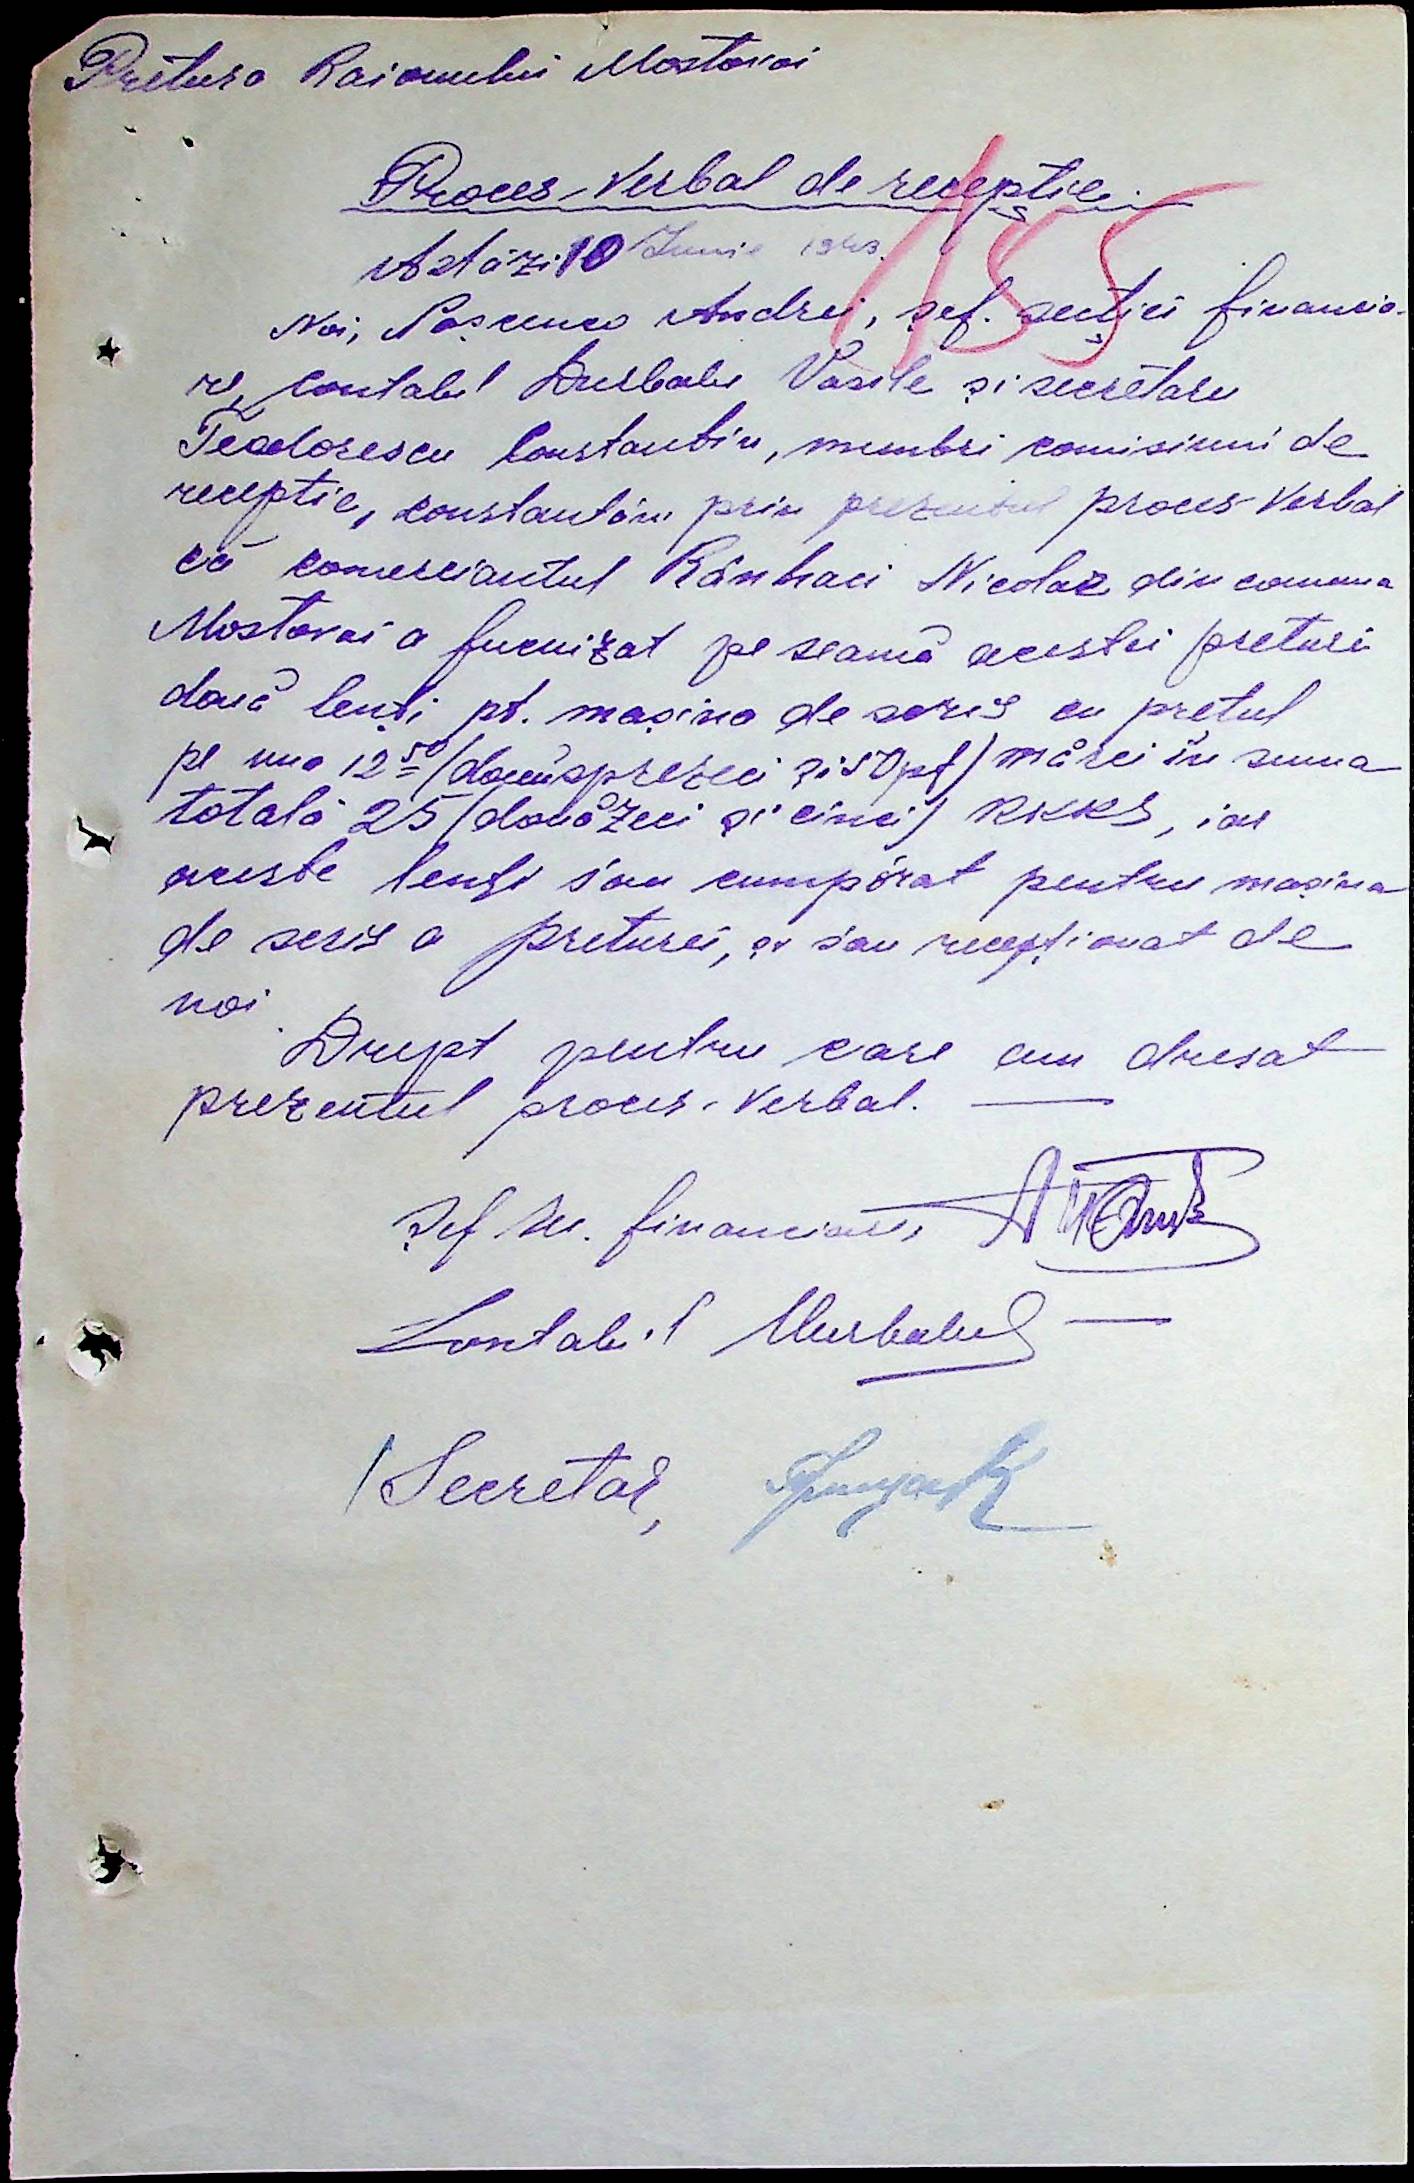 Pretura Raionului Mostovoi
Proces-Verbal de recepție
155
Astăzi 10 Iunie 1943.
Noi, Pașcenco Andrei, șef. secției financia-
re, contabil Durbalu Vasile și secretaru
Teodorescu Constantin, membri comisiuni de
recepție, constantăm prin prezentul proces-Verbal
că comerciantul Rânhaci Nicolae din comuna
Mostovoi a furnizat pe seamă acestei preturi
două lenți pt. mașina de scris cu prețul
pe una 12 50 (douăsprezeci și 50 pf) mărci în suma
totală 25 (douăzeci și cinci) RKKS, iar
aceste lenți s'au cumpărat pentru mașina
de scris a preturei, și s'au recepționat de
noi.
Drept pentru care am dresat
prezentul proces-Verbal.
Șef sec. financiare,
Contabil
Secretar,